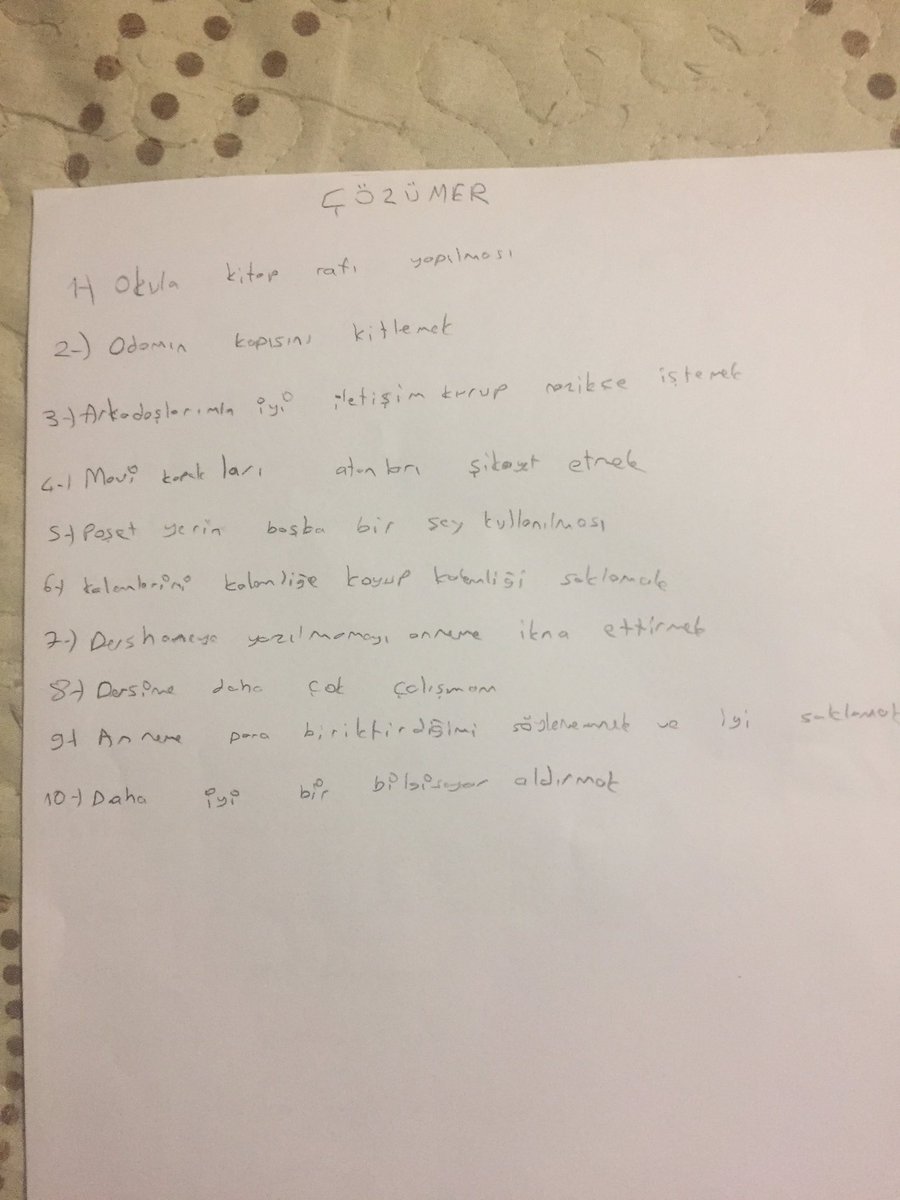 ÇÖZÜMER
1-) Okula kitap rafı yapılması
2-) Odamın kapısını kitlemek
3-) Arkadaşlarımla iyi iletişim kurup nazikçe istemek
4-) Mavi kapakları atanları şikayet etmek
5-) Poşet yerin başba bir şey kullanılması
6-) kalemlerimi kalemliğe koyup kalemliği saklamak
7-) Dershaneye yazılmamayı anneme ikna ettirmek
8-) Dersime daha çok çalışmam
9-) Anneme para biriktirdiğimi söylememek ve iyi saklamak
10-) Daha iyi bir bilgisayar aldırmak